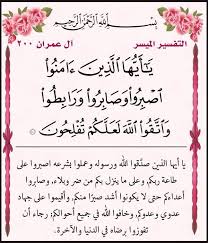 بِسْمِ اللَّهِ الرَّحْمَنِ الرَّحِيمِ
التفسير الميسر
آل عمران ٢٠٠
يَٰٓأَيُّهَا ٱلَّذِينَ ءَامَنُوا۟
ٱصْبِرُوا۟ وَصَابِرُوا۟ وَرَابِطُوا۟
وَٱتَّقُوا۟ ٱللَّهَ لَعَلَّكُمْ تُفْلِحُونَ ٢٠٠
يا أيها الذين صدَّقوا الله ورسوله وعملوا بشرعه اصبروا على
طاعة ربكم، وعلى ما ينزل بكم من ضر وبلاء، وصابروا
أعداءكم حتى لا يكونوا أشد صبرًا منكم، وأقيموا على جهاد
عدوي وعدوكم، وخافوا الله في جميع أحوالكم؛ رجاء أن
تفوزوا برضاه في الدنيا والآخرة.